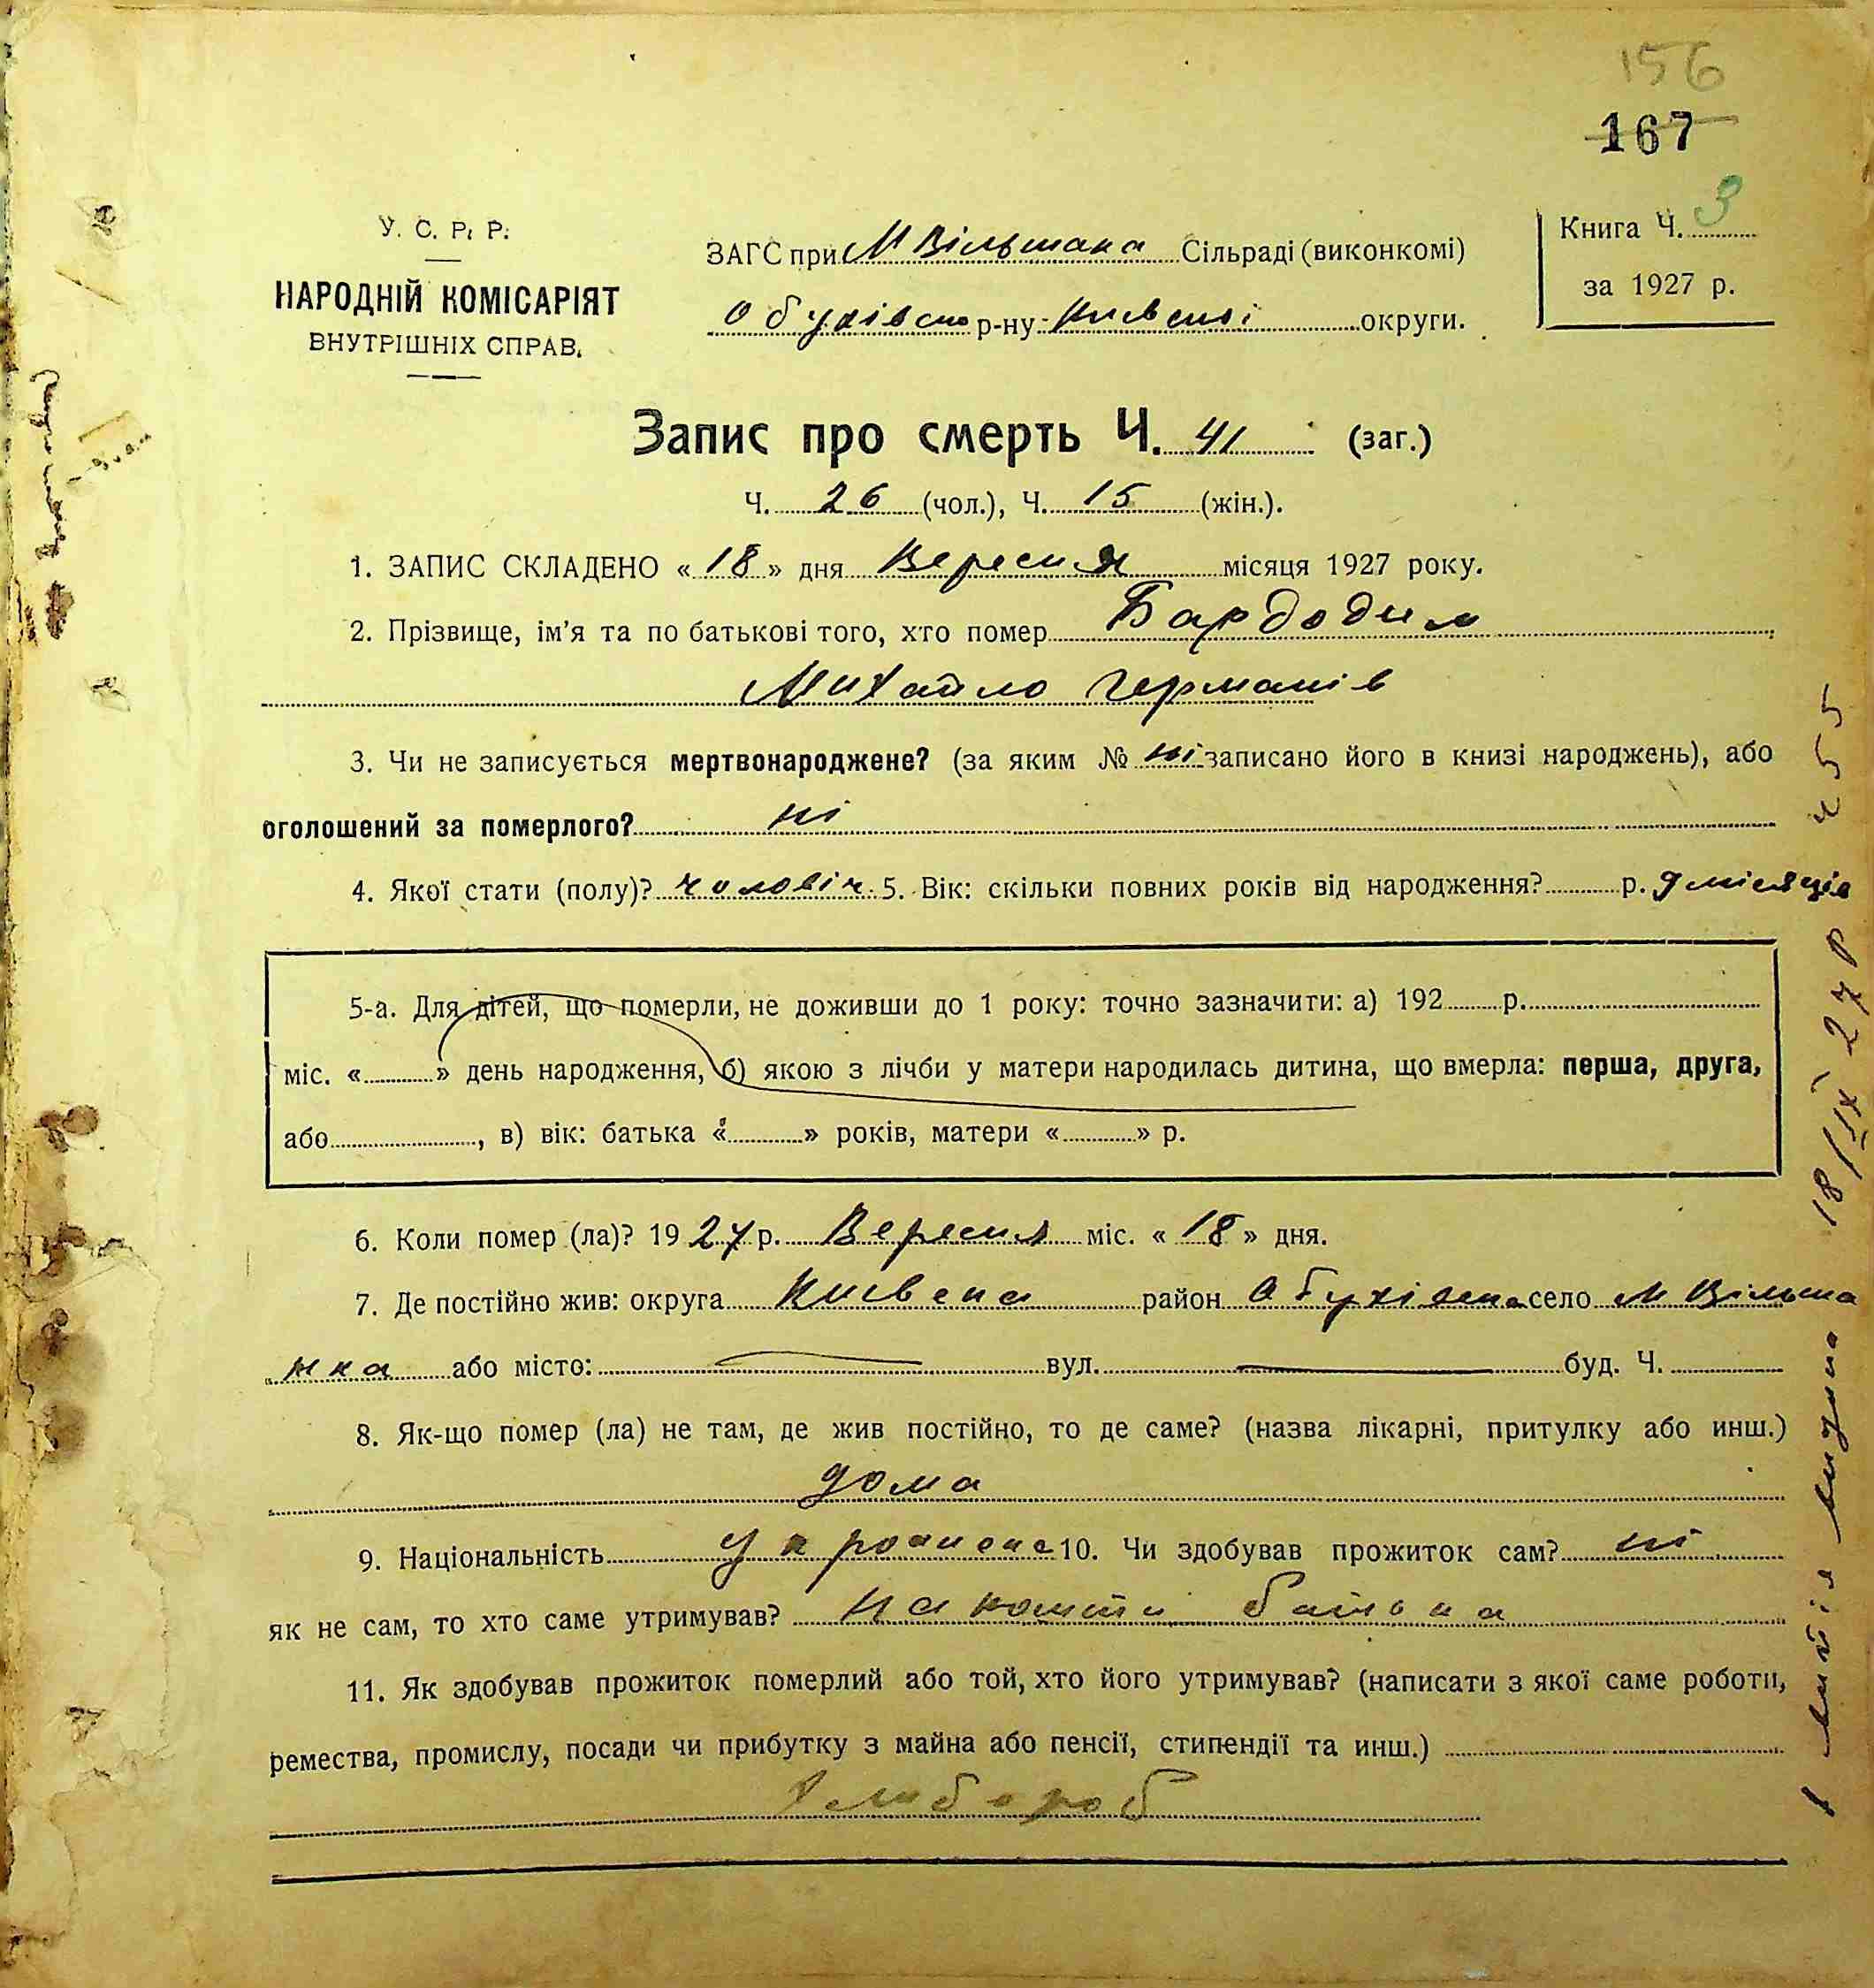 156
167
У. С. Р. Р.
НАРОДНІЙ КОМІСАРІЯТ
ВНУТРІШНІХ СПРАВ.
ЗАГС при М Вільшана Сільраді (виконкомі)
Обухівсько р-ну Киівської округи.
Книга Ч. 3
за 1927 р.
Запис про смерть Ч. 41 (заг.)
Ч. 26 (чол.), Ч. 15 (жін.).
1. ЗАПИС СКЛАДЕНО «18» дня Вересня місяця 1927 року.
2. Прізвище, ім'я та по батькові того, хто помер Бардодим
Михайло Германів
3. Чи не записується мертвонароджене? (за яким № ні записано його в книзі народжень), або
оголошений за померлого? ні
4. Якої стати (полу)? чоловіч. 5. Вік: скільки повних років від народження? р. 9 місяців
5-а. Для дітей, що померли, не доживши до 1 року: точно зазначити: а) 192 р.
міс. « » день народження, б) якою з лічби у матери народилась дитина, що вмерла: перша, друга,
або , в) вік: батька « » років, матери « » р.
6. Коли помер (ла)? 1927 р. Вересня міс. «18» дня.
7. Де постійно жив: округа Киівська район Обухівська село М Вільша
нка або місто: вул. буд. Ч.
8. Як-що помер (ла) не там, де жив постійно, то де саме? (назва лікарні, притулку або инш.)
дома
9. Національність українське 10. Чи здобував прожиток сам? ні
як не сам, то хто саме утримував? на кошти батька
11. Як здобував прожиток померлий або той, хто його утримував? (написати з якої саме роботи,
ремества, промислу, посади чи прибутку з майна або пенсії, стипендії та инш.)
Хлибороб
видана 18/IX 27 р ч 55